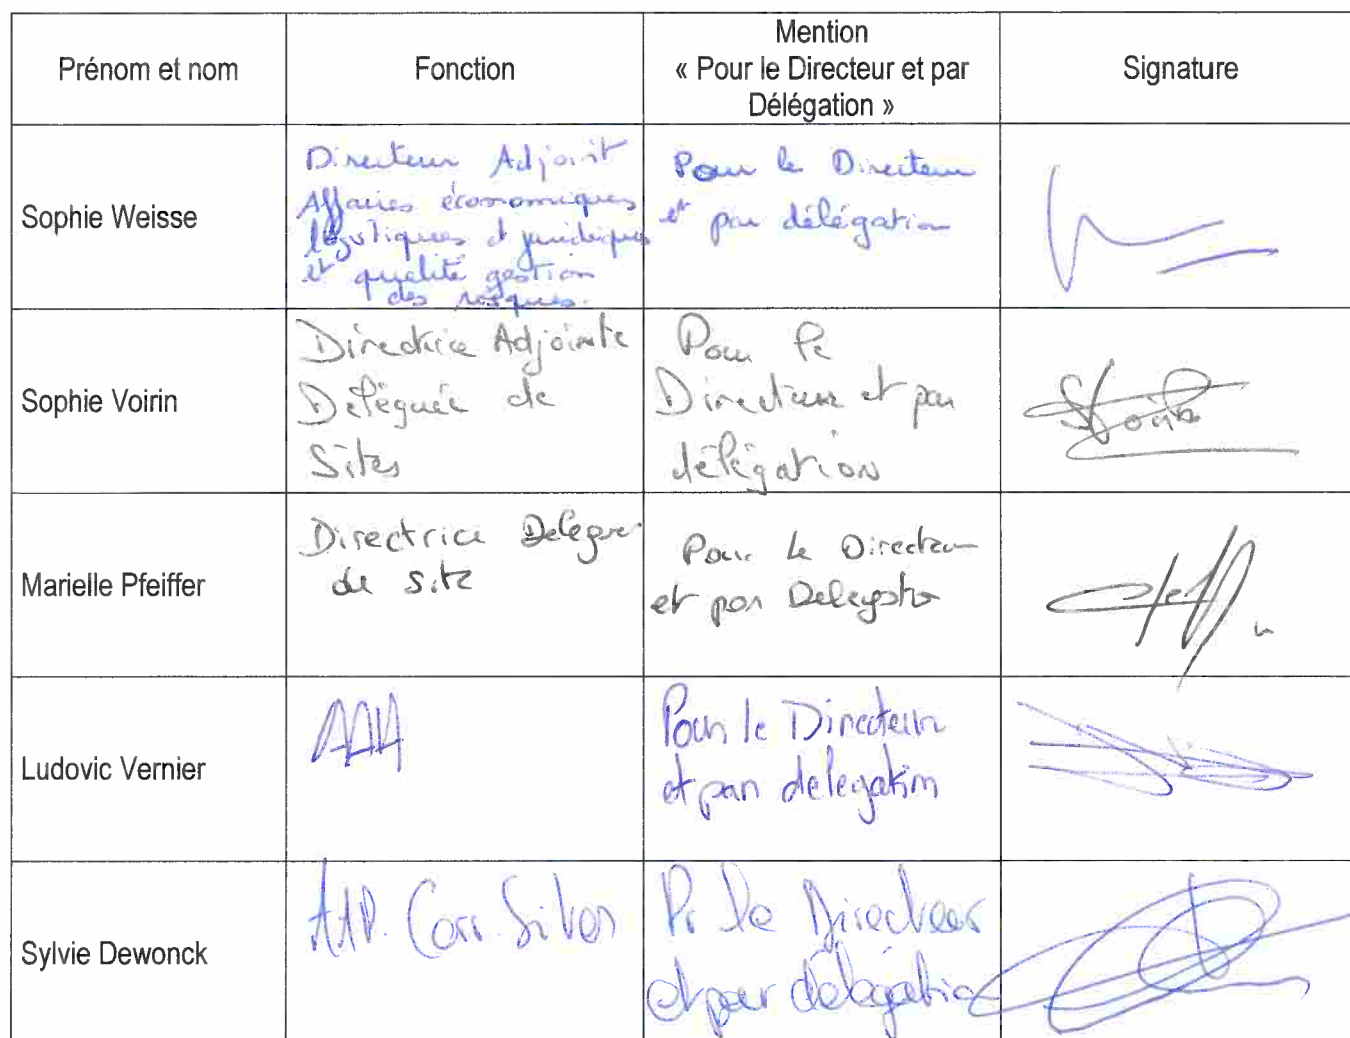 Prénom et nom
Fonction
Mention
« Pour le Directeur et par
Délégation »
Signature
Sophie Weisse
Directeur Adjoint
Affaires économiques
logistiques et juridiques
et qualité gestion
des risques.
Pour le Directeur
et par délégation
Sophie Voirin
Directrice Adjointe
Déléguée de
Sites
Pour le
Directeur et par
délégation
Marielle Pfeiffer
Directrice Déleguee
de site
Pour le Directeur
et par Delegation
Ludovic Vernier
AAH
Pour le Directeur
et par delegation
Sylvie Dewonck
Pr le Directeur
et par délégation